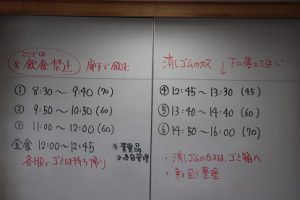 ここでは
※飲食禁止 廊下で飲む
① 8:30〜9:40 (70)
② 9:50〜10:50 (60)
③ 11:00〜12:00 (60)
昼食 12:00〜12:45
※貴重品
各自管理
各HRで ゴミは持ち帰り
消しゴムのカス ↓下に落とさない
④ 12:45〜13:30 (45)
⑤ 13:40〜14:40 (60)
⑥ 14:50〜16:00 (70)
・消しゴムのカスは、ゴミ箱へ
整理